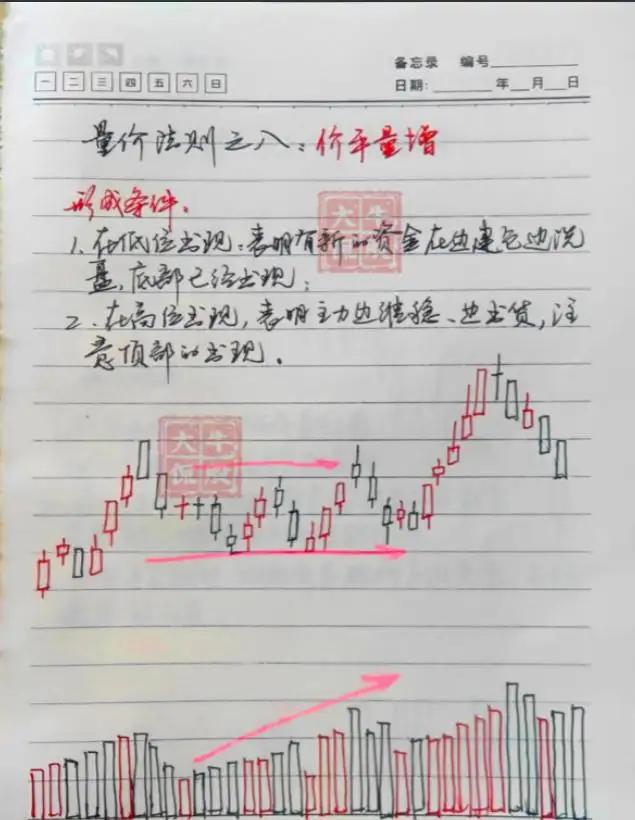 备忘录 编号
一 二 三 四 五 六 日
日期: 年 月 日
量价法则之八：价平量增
形成条件：
1、在低位出现：表明有新的资金在边建仓边洗
盘，底部已经出现；
2、在高位出现，表明主力边维稳、边出货，注
意顶部的出现。
大牛
大牛
侃股